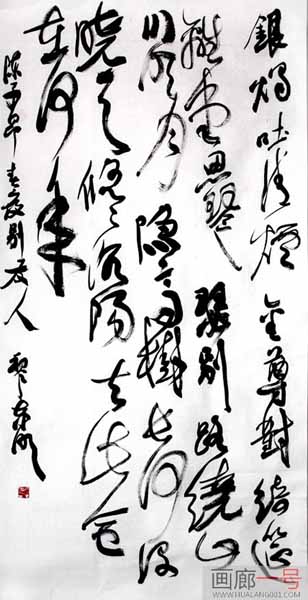 銀燭吐青煙金尊對綺筵
離堂思琴瑟别路繞山
川明月隱高樹長河没
曉天悠々洛陽去此會
在何年
陈子昂春夜别友人
画廊一号
WWW.HUALANG001.COM